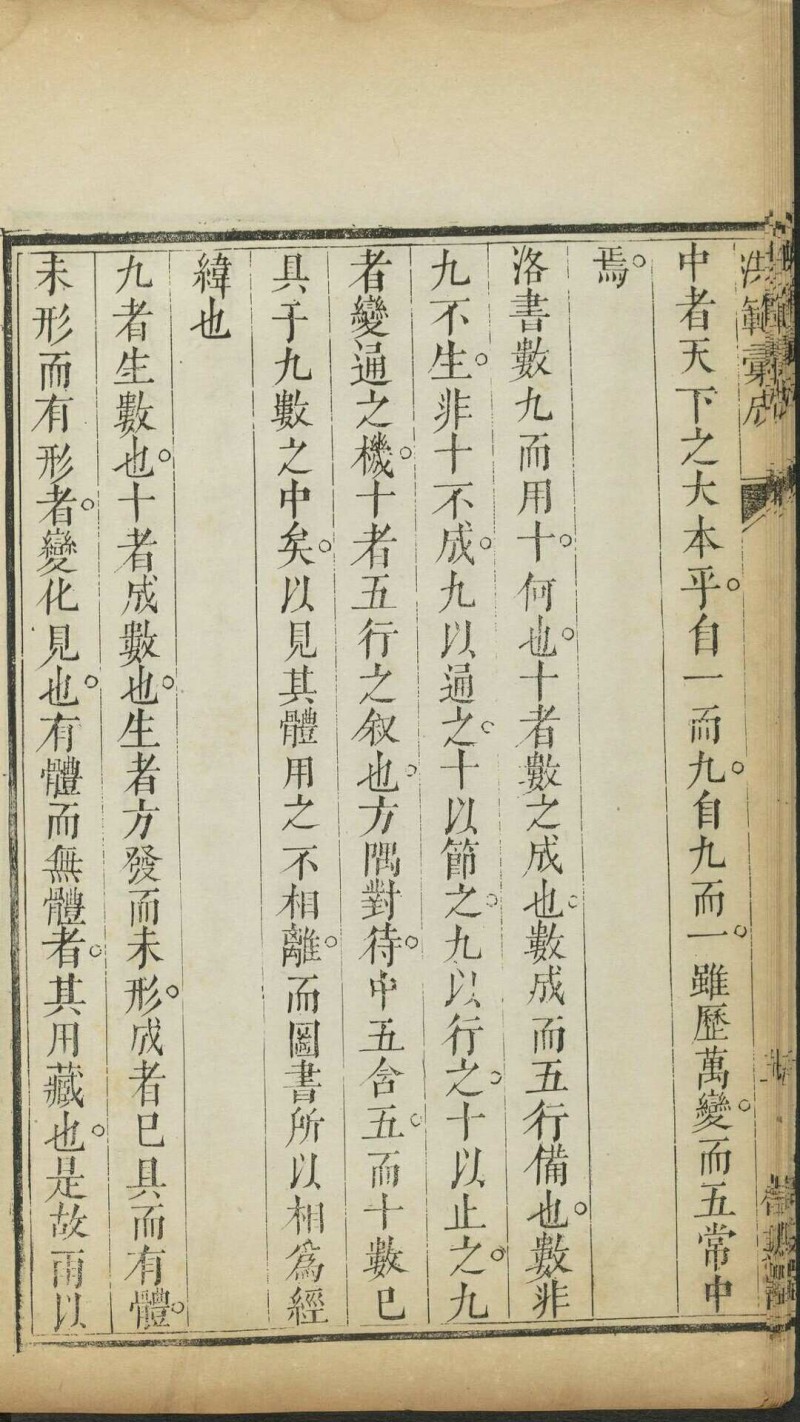 洪範彙成
中者天下之大本乎。自一而九。自九而一。雖歷萬變。而五常中
焉。
洛書數九而用十。何也。十者數之成也。數成而五行備也。數非
九不生。非十不成。九以通之。十以節之。九以行之。十以止之。九
者變通之機。十者五行之叙也。方隅對待。中五含五。而十數已
具于九數之中矣。以見其體用之不相離。而圖書所以相爲經
緯也
九者生數也。十者成數也。生者方發而未形。成者已具而有體。
未形而有形者。變化見也。有體而無體者。其用藏也。是故雨以